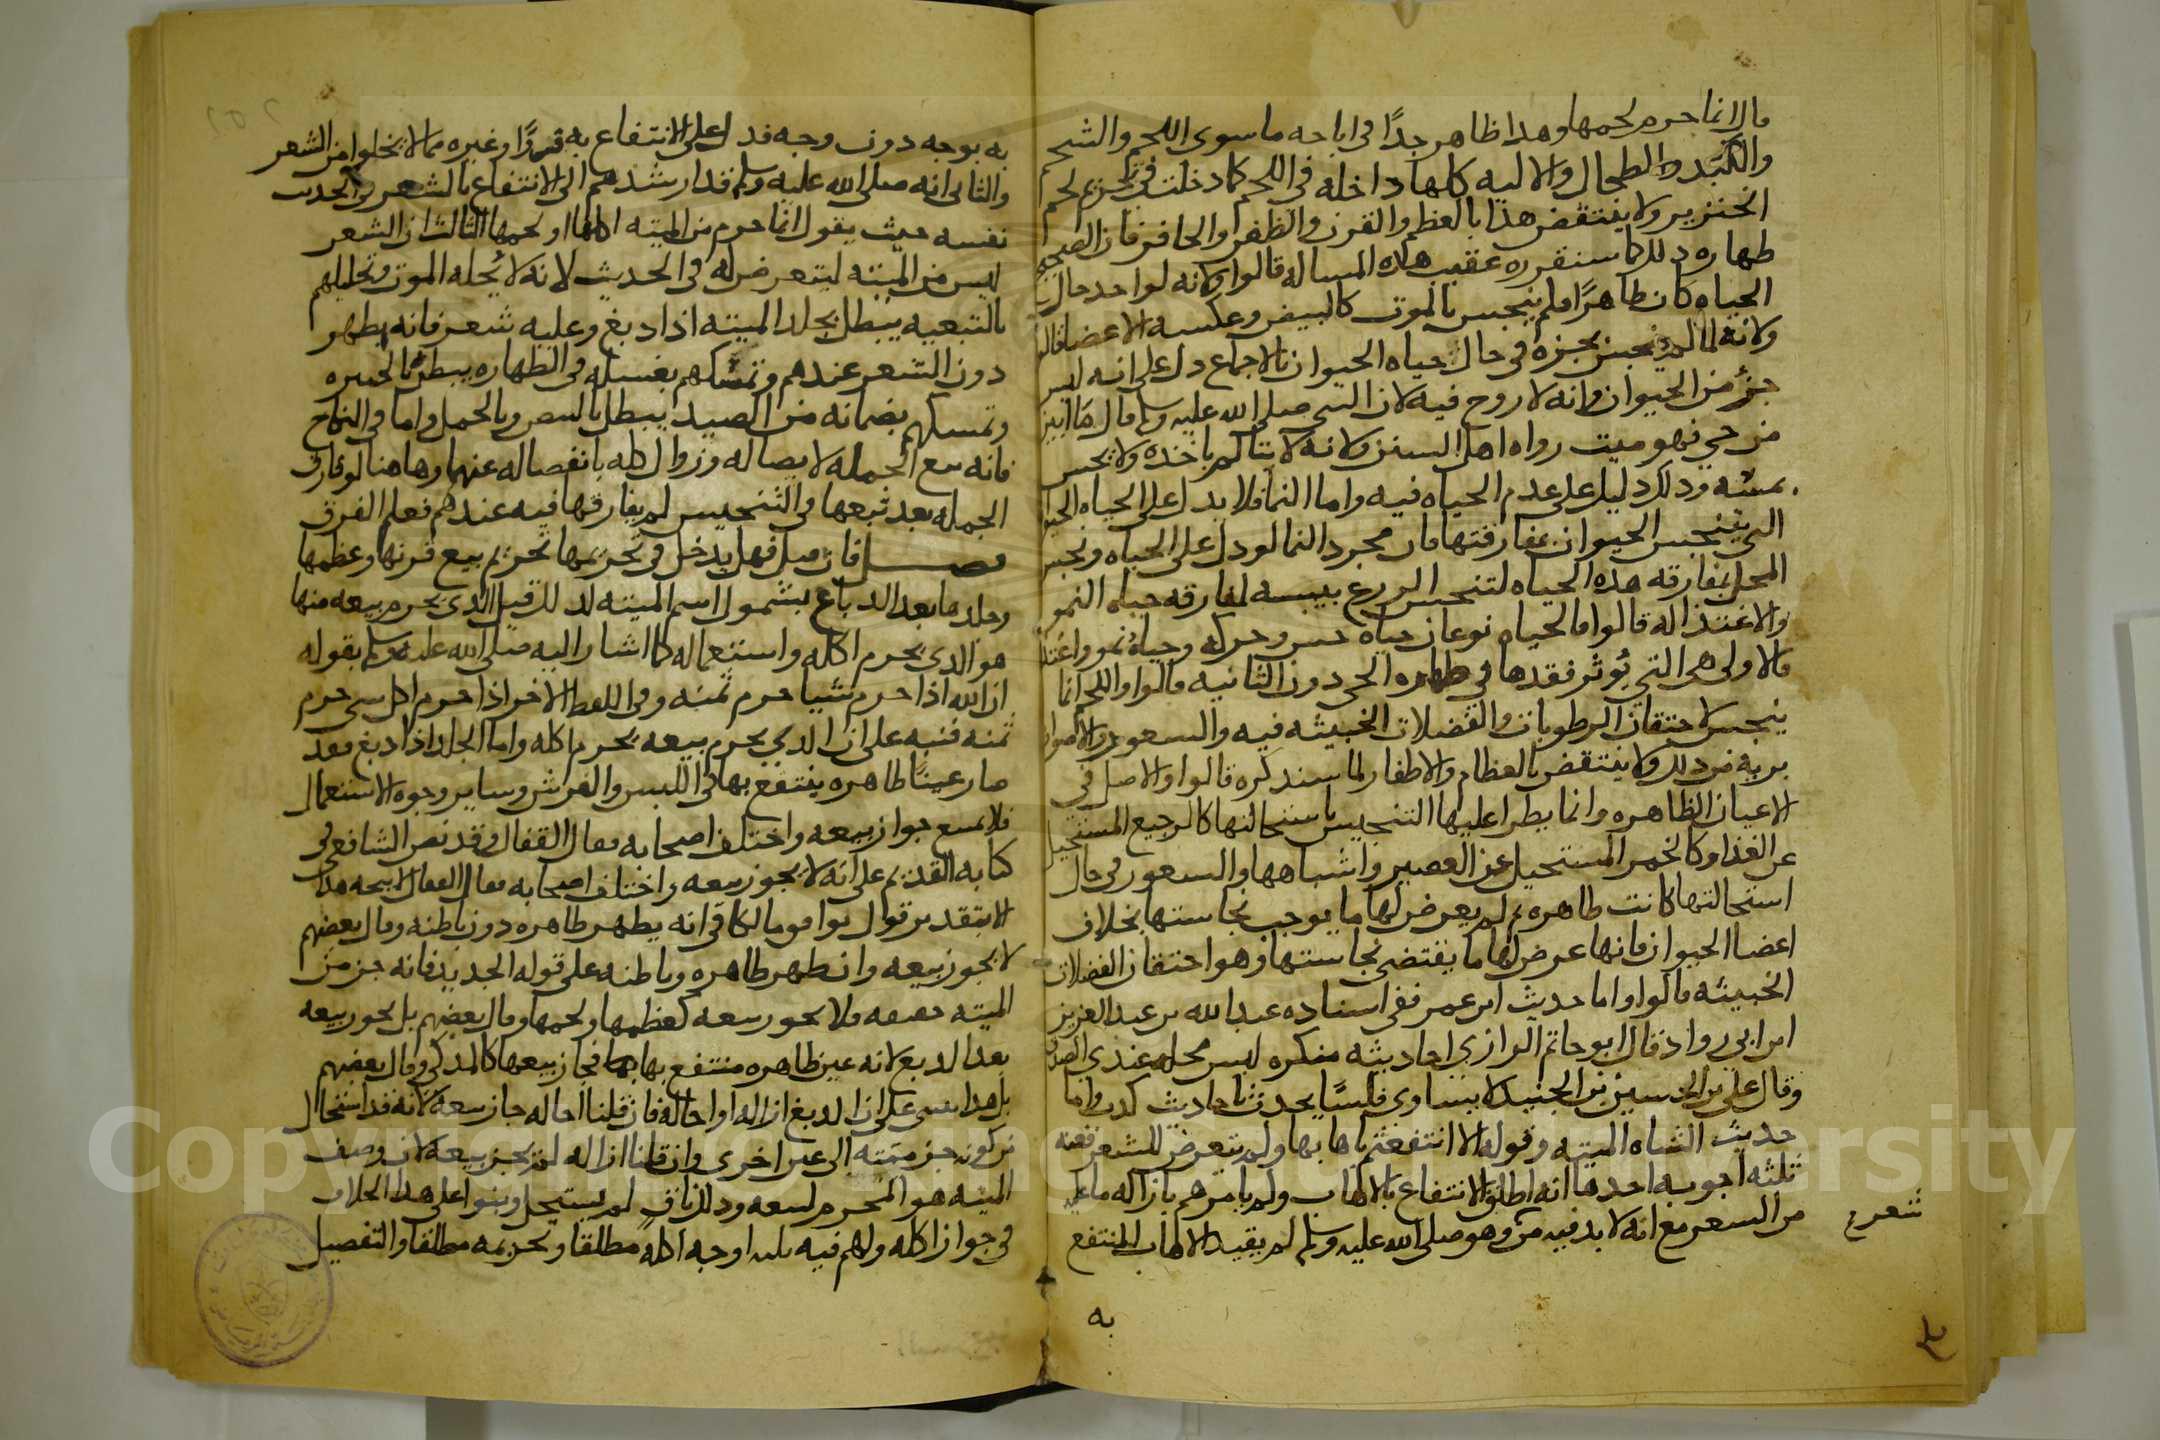 قال انما حرم لحمها وهذا ظاهر جدًا في اباحه ما سوى اللحم والشحم
والكبد والطحال والاليه كلها داخله في اللحم كما دخلت في تحريم لحم
الخنزير ولا ينتقض هذا بالعظم والقرن والظفر والحافر فان الصحيح
طهاره ذلك كما سنقرره عقيب هذه المساله قالوا ولانه لو اخذ حال
الحياه كان طاهرًا فلم ينجس بالموت كالبيض وعكسه الاعضا قالوا
ولانه لما لم ينجس بجزه في حال حياه الحيوان بالاجماع دل على انه ليس
جزؤ من الحيوان وانه لا روح فيه لان النبي صلى الله عليه وسلم قال ما ابين
من حي فهو ميت رواه اهل السنن ولانه لا يتالم باخذه ولا يحس
بمسه وذلك دليل على عدم الحياه فيه واما النما فلا يدل على الحياه الحيو
التي ينجس الحيوان بمفارقتها فان مجرد النما لو دل على الحياه ونجس
المحل بمفارقه هذه الحياه لتنجس الزرع بيبسه لمفارقه حياه النمو
والاغتذا له قالوا فالحياه نوعان حياه حس وحركه وحياه نمو واغتذا
فالاولى هي التي يؤثر فقدها في طهاره الحي دون الثانيه قالوا واللحم انما
ينجس لاحتقان الرطوبات والفضلات الخبيثه فيه والسعور والاصواف
بريه من ذلك ولا ينتقض بالعظام والاظفار لما سنذكره قالوا والاصل في
الاعيان الطاهره وانما يطرا عليها التنجيس باستحالتها كالرجيع المستحيل
عن الغذا وكالخمر المستحيل عن العصير واشباهها والسعور في حال
استحالتها كانت طاهره ثم لم يعرض لها ما يوجب نجاستها بخلاف
اعضا الحيوان فانها عرض لها ما يقتضي نجاستها وهو احتقان الفضلات
الخبيثه قالوا واما حديث ابن عمر ففي اسناده عبد الله بن عبد العزيز
ابن ابي رواد قال ابو حاتم الرازي احاديثه منكره ليس محله عندي الصدق
وقال علي بن الحسين بن الجنيد لا يساوي فلسًا يحدث باحاديث كذب واما
حديث الشاه الميته وقوله الا انتفعتم باهابها ولم يتعرض للشعر فعنه
ثلثه اجوبه احدها انه اطلق الانتفاع بالاهاب ولم يامرهم بازاله ما عليه
من السعر مع انه لا بد فيه من وهو صلى الله عليه وسلم لم يقيد الاهاب المنتفع
شعر
به
به بوجه دون وجه فدل على الانتفاع به فروًا وغيره مما لا يخلوا من الشعر
والثاني انه صلى الله عليه وسلم قد ارشدهم الى الانتفاع بالشعر في الحديث
نفسه حيث يقول انما حرم من الميته اكلها او لحمها الثالث ان الشعر
ليس من الميته ليتعرض له في الحديث لانه لا يحله الموت وتعليلهم
بالتبعيه يبطل بجلد الميته اذا دبغ وعليه شعر فانه يطهر
دون الشعر عندهم وتمسكهم بغسله في الطهاره يبطل بالجبيره
وتمسكهم بضمانه من الصيد يبطل بالبيض وبالحمل واما في النكاح
فانه يتبع الجمله لاتصاله وزوال كله بانفصاله عنها وهاهنا لو فارق
الجمله بعد تبعها في التنجيس لم يفارقها فيه عندهم فعلم الفرق
فصل فان قيل فهل يدخل في تحريمها تحريم بيع قرنها وعظمها
وجلدها بعد الدباغ لشمول اسم الميته لذلك قيل الذي يحرم بيعه منها
هو الذي يحرم اكله واستعماله كما اشار اليه صلى الله عليه وسلم بقوله
ان الله اذا حرم شيا حرم ثمنه وفي اللفظ الاخر اذا حرم اكل شي حرم
ثمنه فنبه على ان الذي يحرم بيعه يحرم اكله واما الجلد اذا دبغ فقد
صار عينًا طاهره ينتفع بها في اللبس والفرش وساير وجوه الاستعمال
فلا يمنع جواز بيعه واختلف اصحابه فقال القفال وقد نص الشافعي في
كتابه القديم على انه لا يجوز بيعه واختلف اصحابه فقال القفال لا يتجه هذا
الا بتقدير قول يوافق مالكا في انه يطهر ظاهره دون باطنه وقال بعضهم
لا يجوز بيعه وان طهر ظاهره وباطنه على قوله الجديد فانه جزء من
الميته حقيقه فلا يجوز بيعه كعظمها ولحمها وقال بعضهم بل يجوز بيعه
بعد الدبغ لانه عين طاهره منتفع بها فجاز بيعها كالمذكي وقال بعضهم
بل هذا ينبني على ان الدبغ ازاله او احاله فان قلنا احاله جاز بيعه لانه قد استحال
من كونه جزء ميته الى عين اخرى وان قلنا ازاله لم يجز بيعه لان وصف
الميته هو المحرم لبيعه وذلك باق لم يستحل وبنوا على هذا الخلاف
في جواز اكله ولهم فيه ثلثه اوجه اكله مطلقا وتحريمه مطلقا والتفصيل